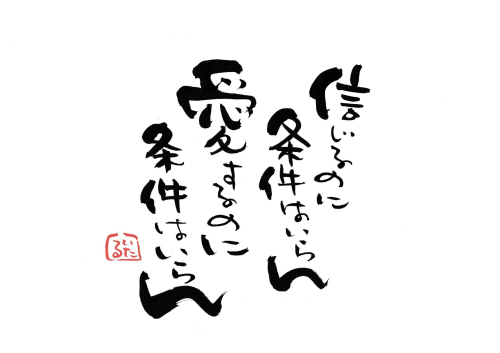 信じるのに
条件はいらん
愛するのに
条件はいらん